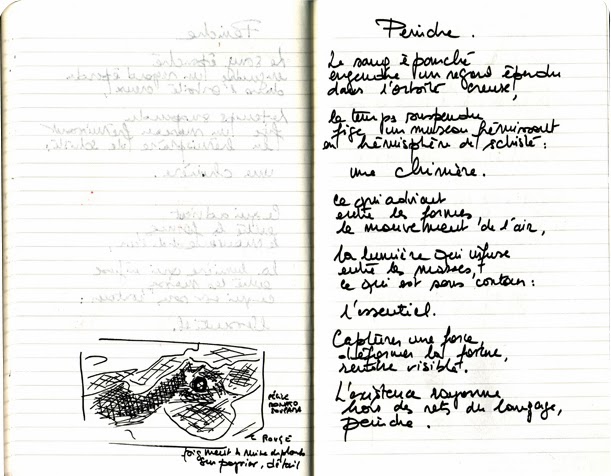 Peindre.
Le sang épanché
engendre un regard éperdu
dans l'orbite creuse,
le temps suspendu
fige un museau frémissant
en hémisphère de schiste :
une chimère.
Ce qui advient
entre les formes
le mouvement de l'air,
la lumière qui infuse
entre les masses,
ce qui est sans contour :
l'essentiel.
Capturer une force,
déformer la forme,
rendre visible.
L'existence rayonne
hors des rets du langage,
peindre.
ROUGE
sur papier, détail